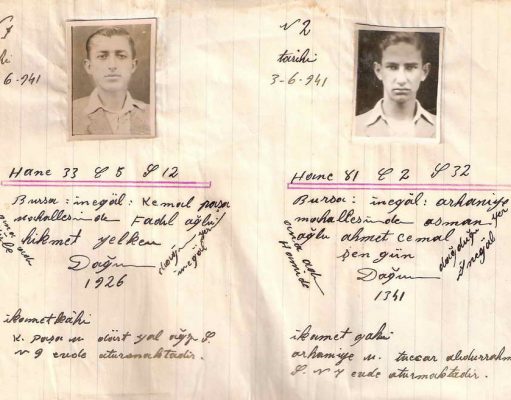 N 2
tarihi
6-941
3-6-941
Hane 33 C 5 S 12
Bursa : inegöl : Kemal paşa
mahallesinde Fadıl oğlu
hikmet yelken
Doğum
1926
ana adı
doğduğu yer
inegöl
ikametkâhi
K. paşa m. dört yol ağzı S.
N 9 evde oturmaktadir.
Hane 81 C 2 S 32
Bursa : inegöl : orhaniye
mahallesinde osman
oğlu ahmet cemal
şen gün
Doğum
1341
ana adı
Hamide
doğduğu yer
İnegöl
ikamet gahi
orhaniye m. tuccar abdurrahm
S. N 7 evde oturmaktedir.